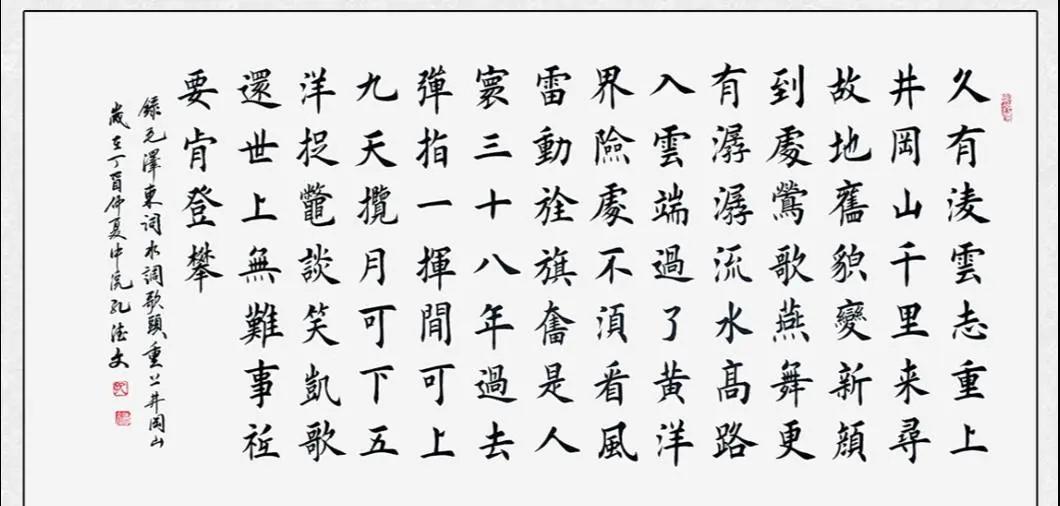 久有淩雲志重上
井岡山千里来尋
故地舊貌變新顔
到處鶯歌燕舞更
有潺潺流水高路
入雲端過了黄洋
界險處不須看風
雷動旌旗奮是人
寰三十八年過去
彈指一揮間可上
九天攬月可下五
洋捉鼈談笑凱歌
還世上無難事衹
要肯登攀
録毛澤東词水調歌頭重上井岡山
歲在丁酉仲夏中浣孔德文